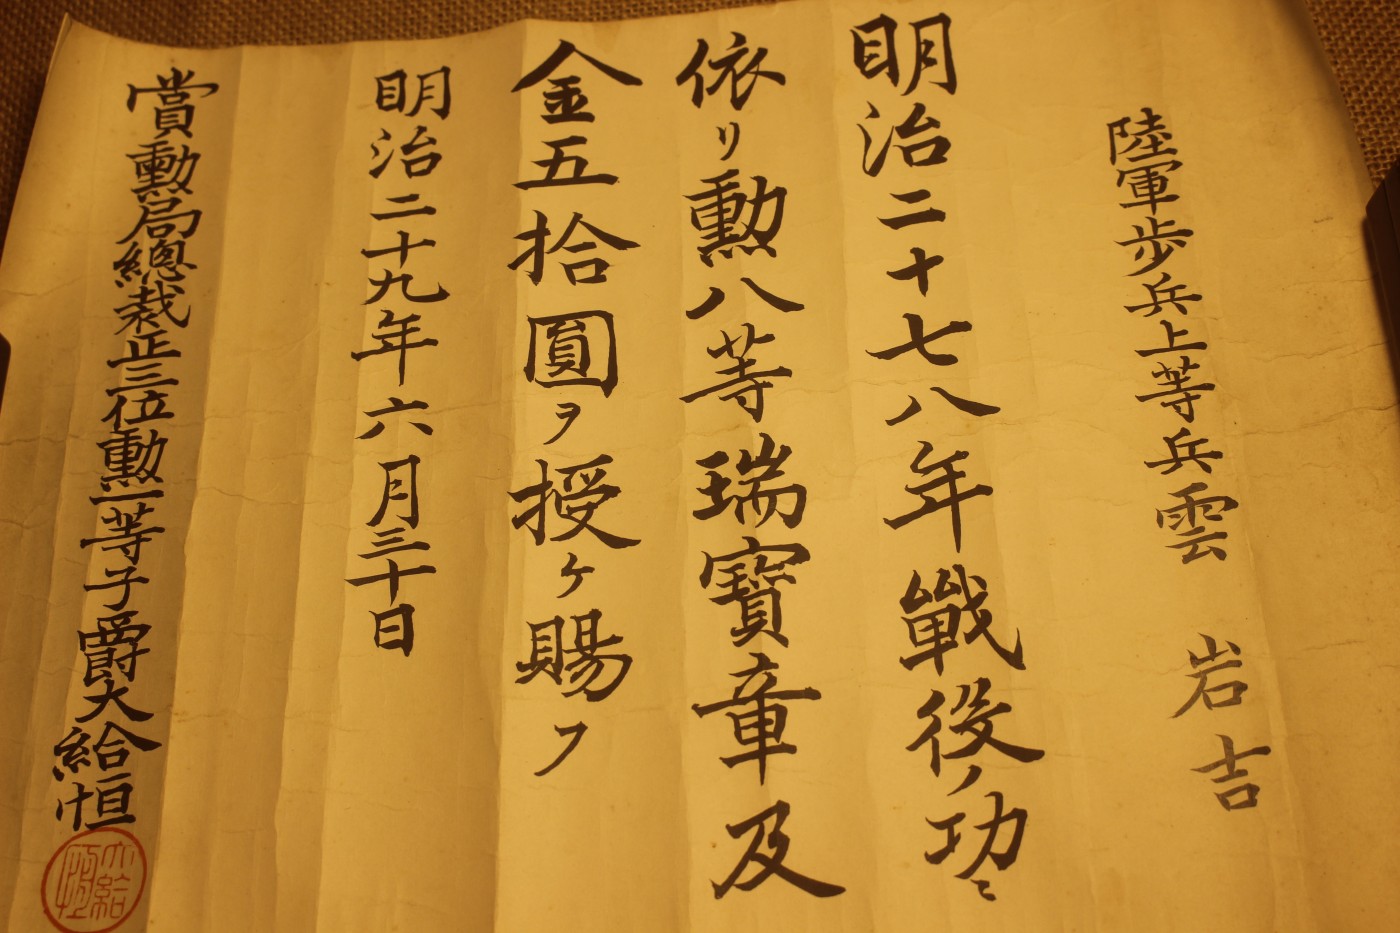 陸軍歩兵上等兵雲 岩吉
明治二十七八年戰役ノ功ニ
依リ勲八等瑞寶章及
金五拾圓ヲ授ケ賜フ
明治二十九年六月三十日
賞勲局總裁正三位勲一等子爵大給恒
大給恒